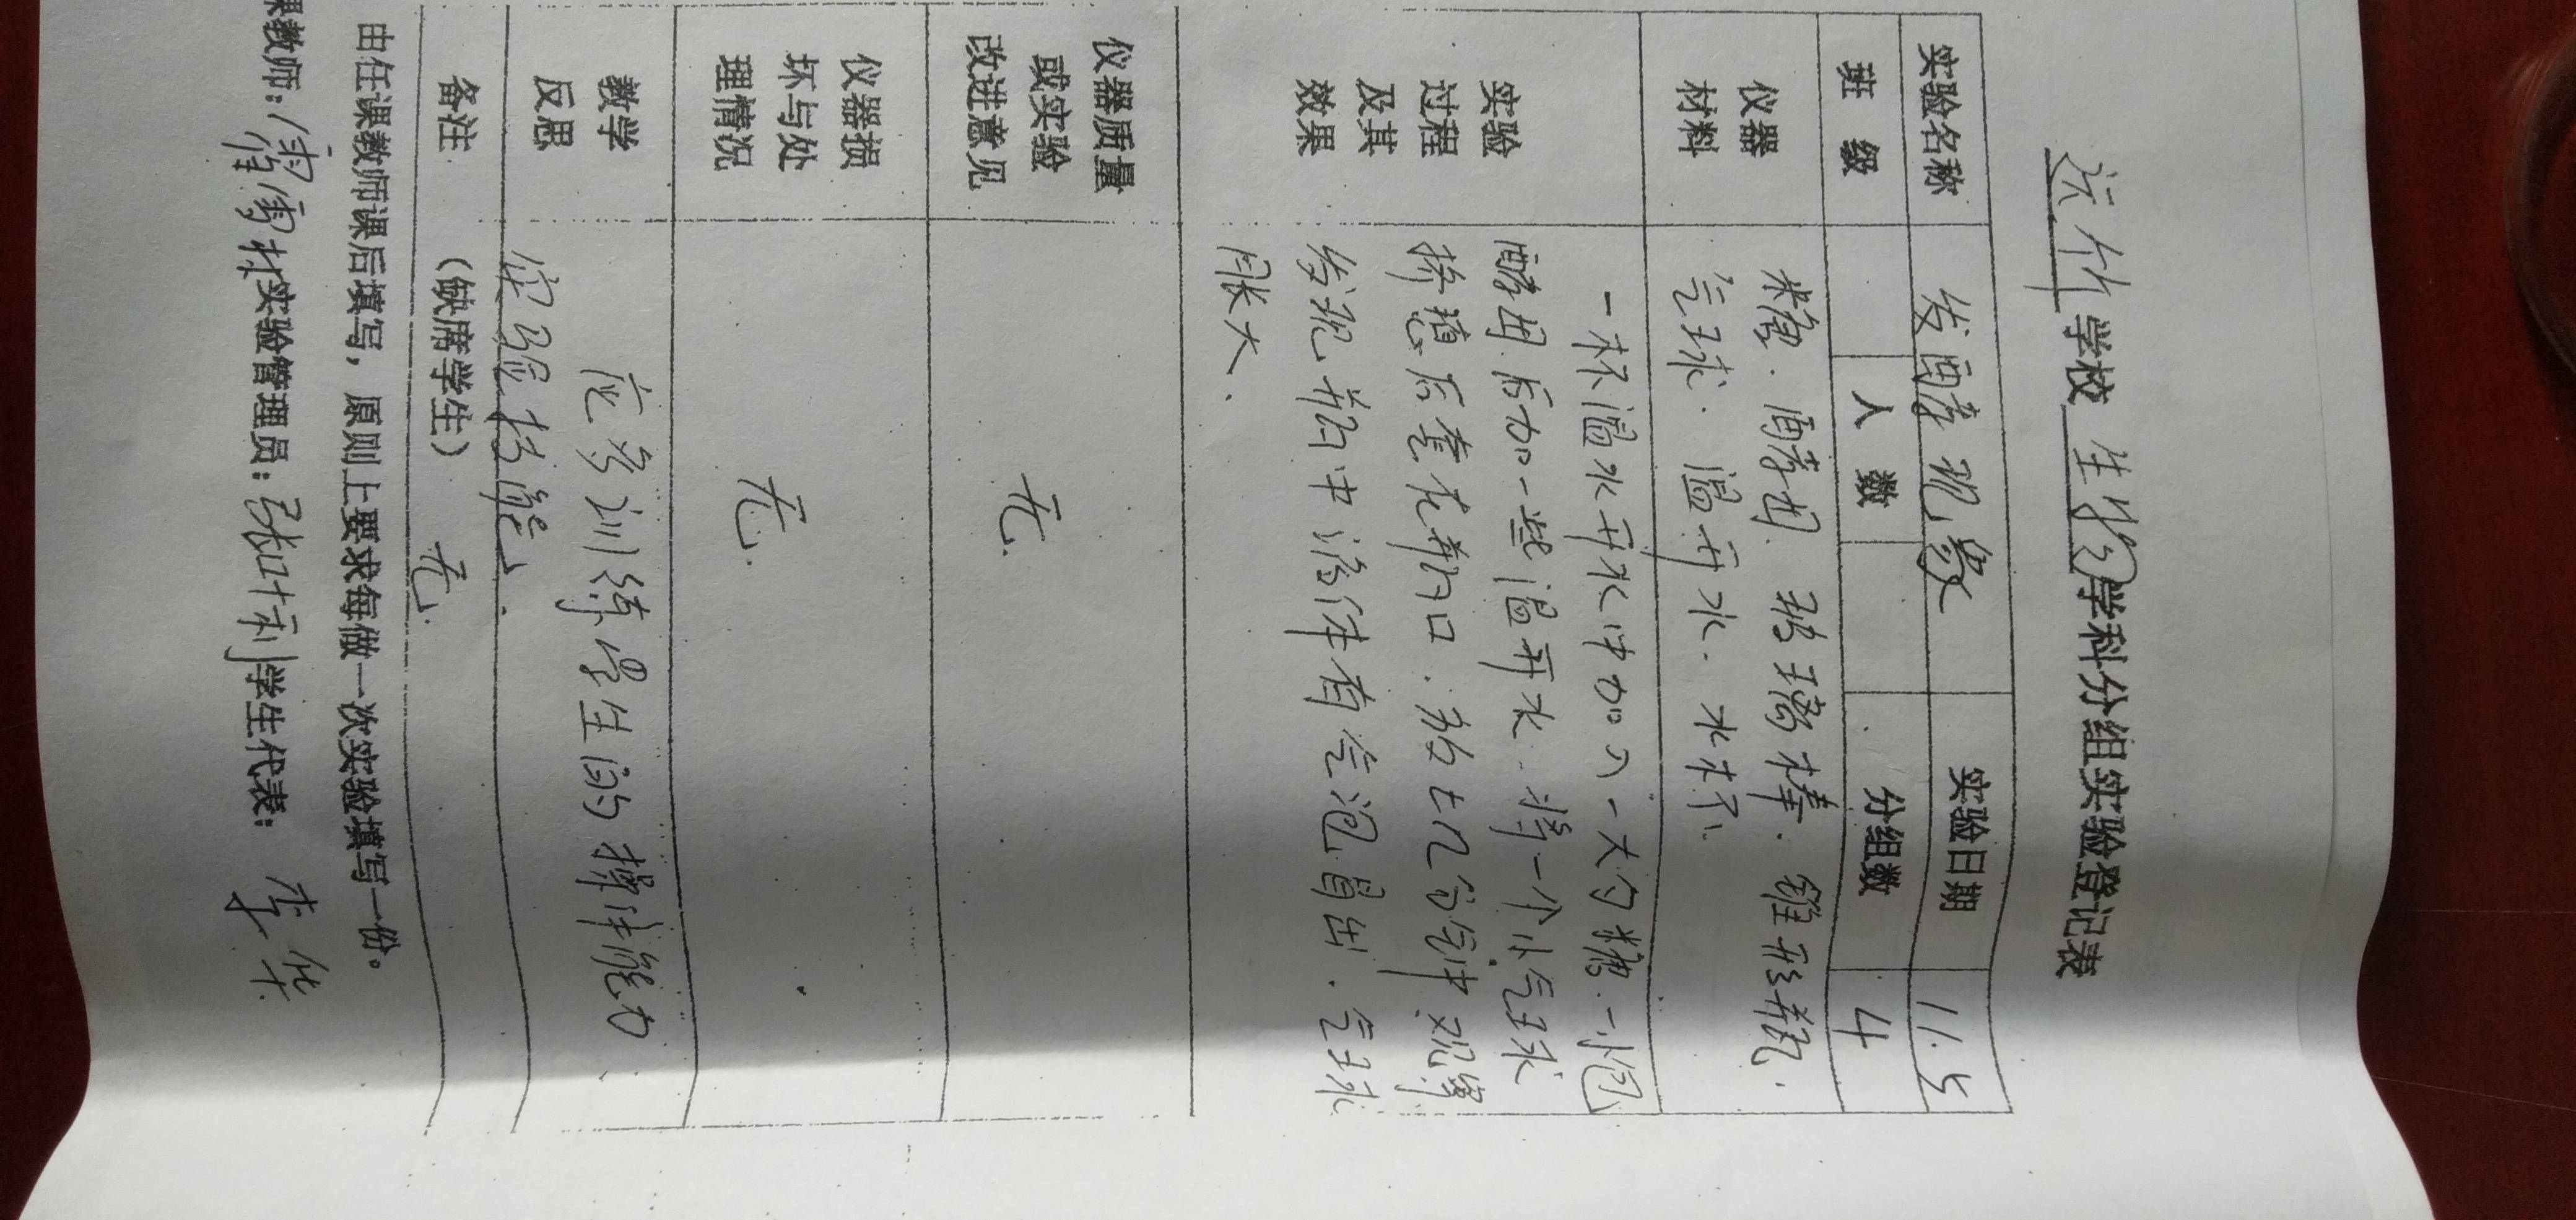 学校 生物学科分组实验登记表
实验名称 发酵现象 实验日期 11.5
班级 人数 分组数 4
仪器材料 糖.酵母.玻璃棒.锥形瓶.
气球.温开水.水杯.
实验过程及其效果
一杯温水开水中加入一大勺糖.一小包
酵母.后加一些温开水.将一个小气球
挤憋后套在瓶口.放在几分钟观察
发现瓶中液体有气泡冒出.气球
胀大.
仪器质量或实验改进意见 无.
仪器损坏与处理情况 无.
教学反思 应多训练学生的操作能力
实验技能.
备注 (缺席学生) 无.
由任课教师课后填写，原则上要求每做一次实验填写一份。
课教师: 实验管理员: 学生代表: 李华